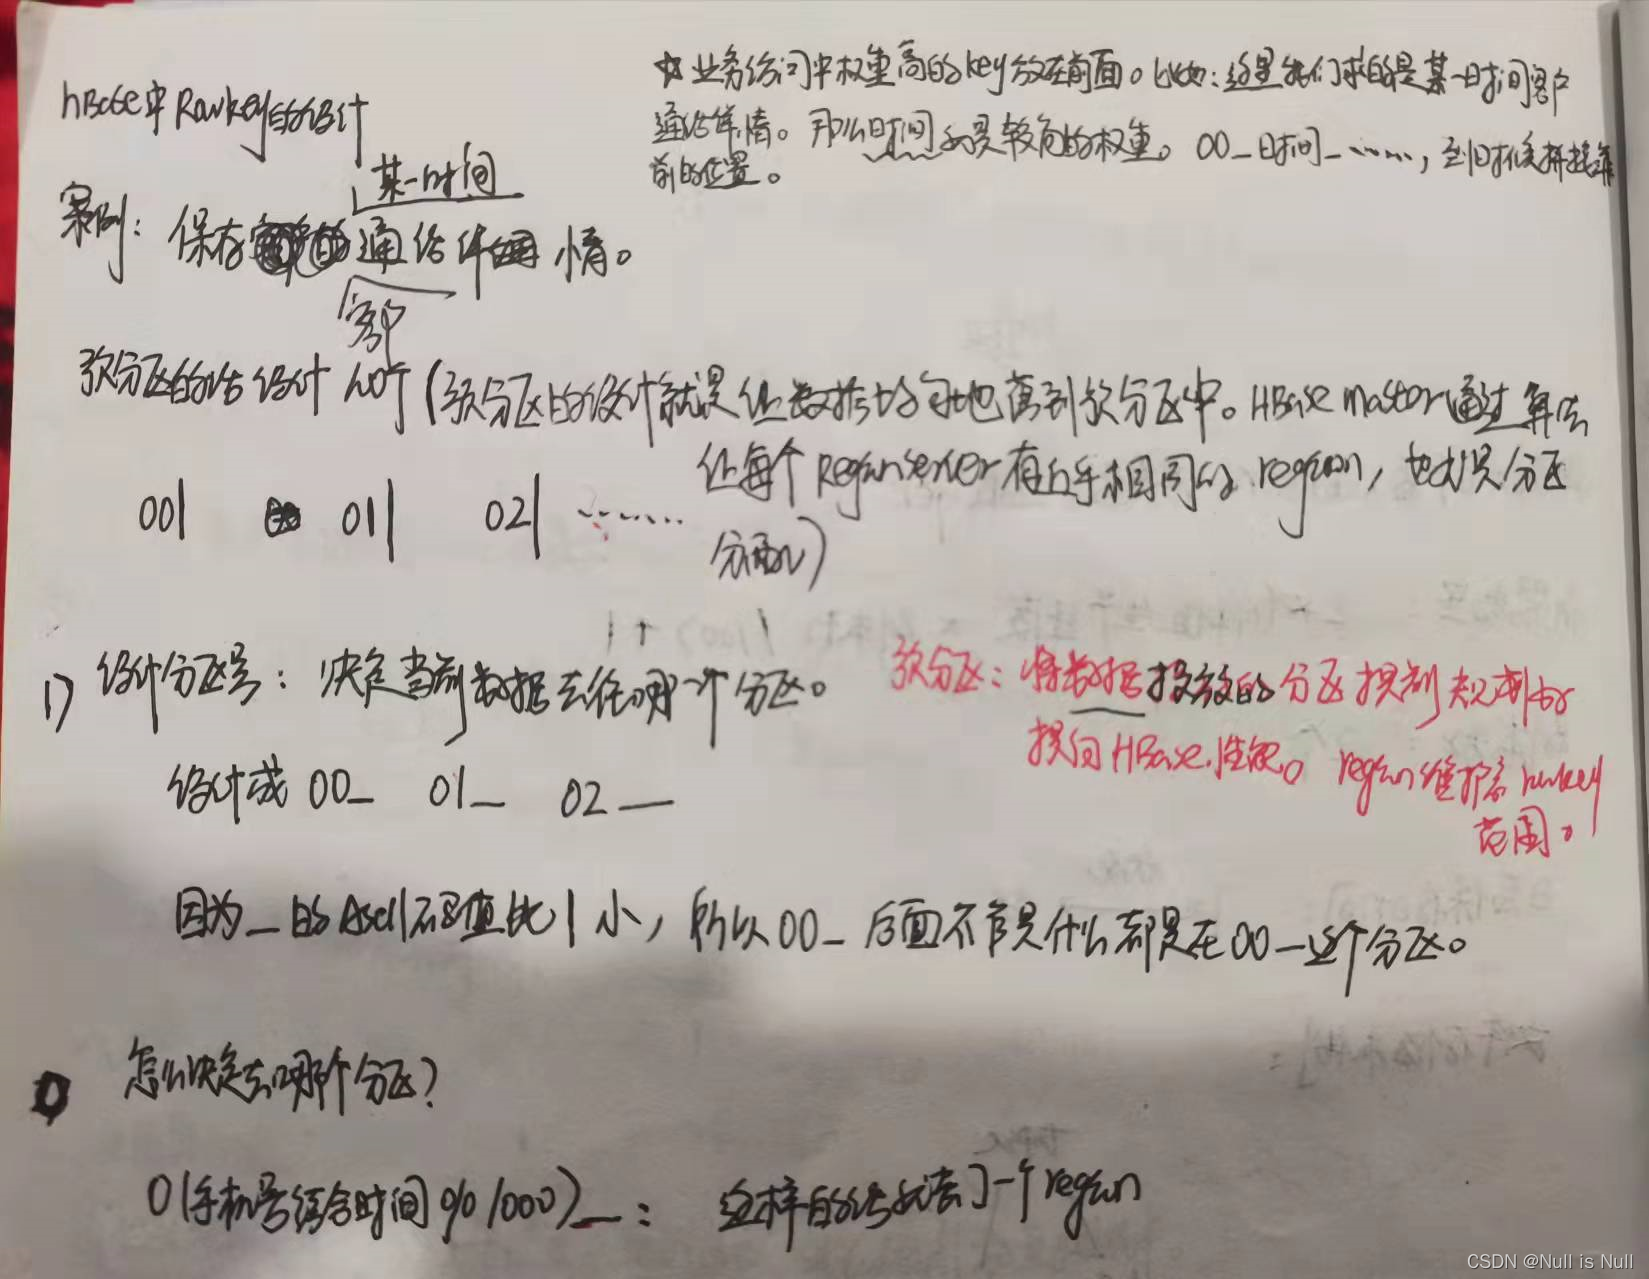 hBase中Rowkey的设计
☆业务访问中权重高的key放在前面。比如:这里我们求的是某一时间客户
通话详情。那么时间就是较高的权重。00_时间_……,到时候拼接靠
前的位置。
某一时间
案例: 保存 通话详情。
客户
预分区的话设计 个(预分区的设计就是让数据均匀地落到预分区中。HBase master通过算法
让每个Regionserver有近乎相同的region,也就是分区
分配)
00| 01| 02| ……
1) 设计分区号: 决定当前数据去往哪一个分区。
预分区: 将数据投放的分区提前规划好
提高HBase性能。region维护着rowkey
范围。
设计成 00_ 01_ 02_
因为_的Ascll码值比|小,所以00_后面不管是什么都是在00_这个分区。
怎么决定去哪个分区?
0(手机号结合时间%1000)_: 这样的话就去了一个region
CSDN @Null is Null